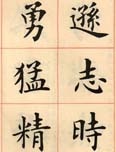 遜志時
勇猛精